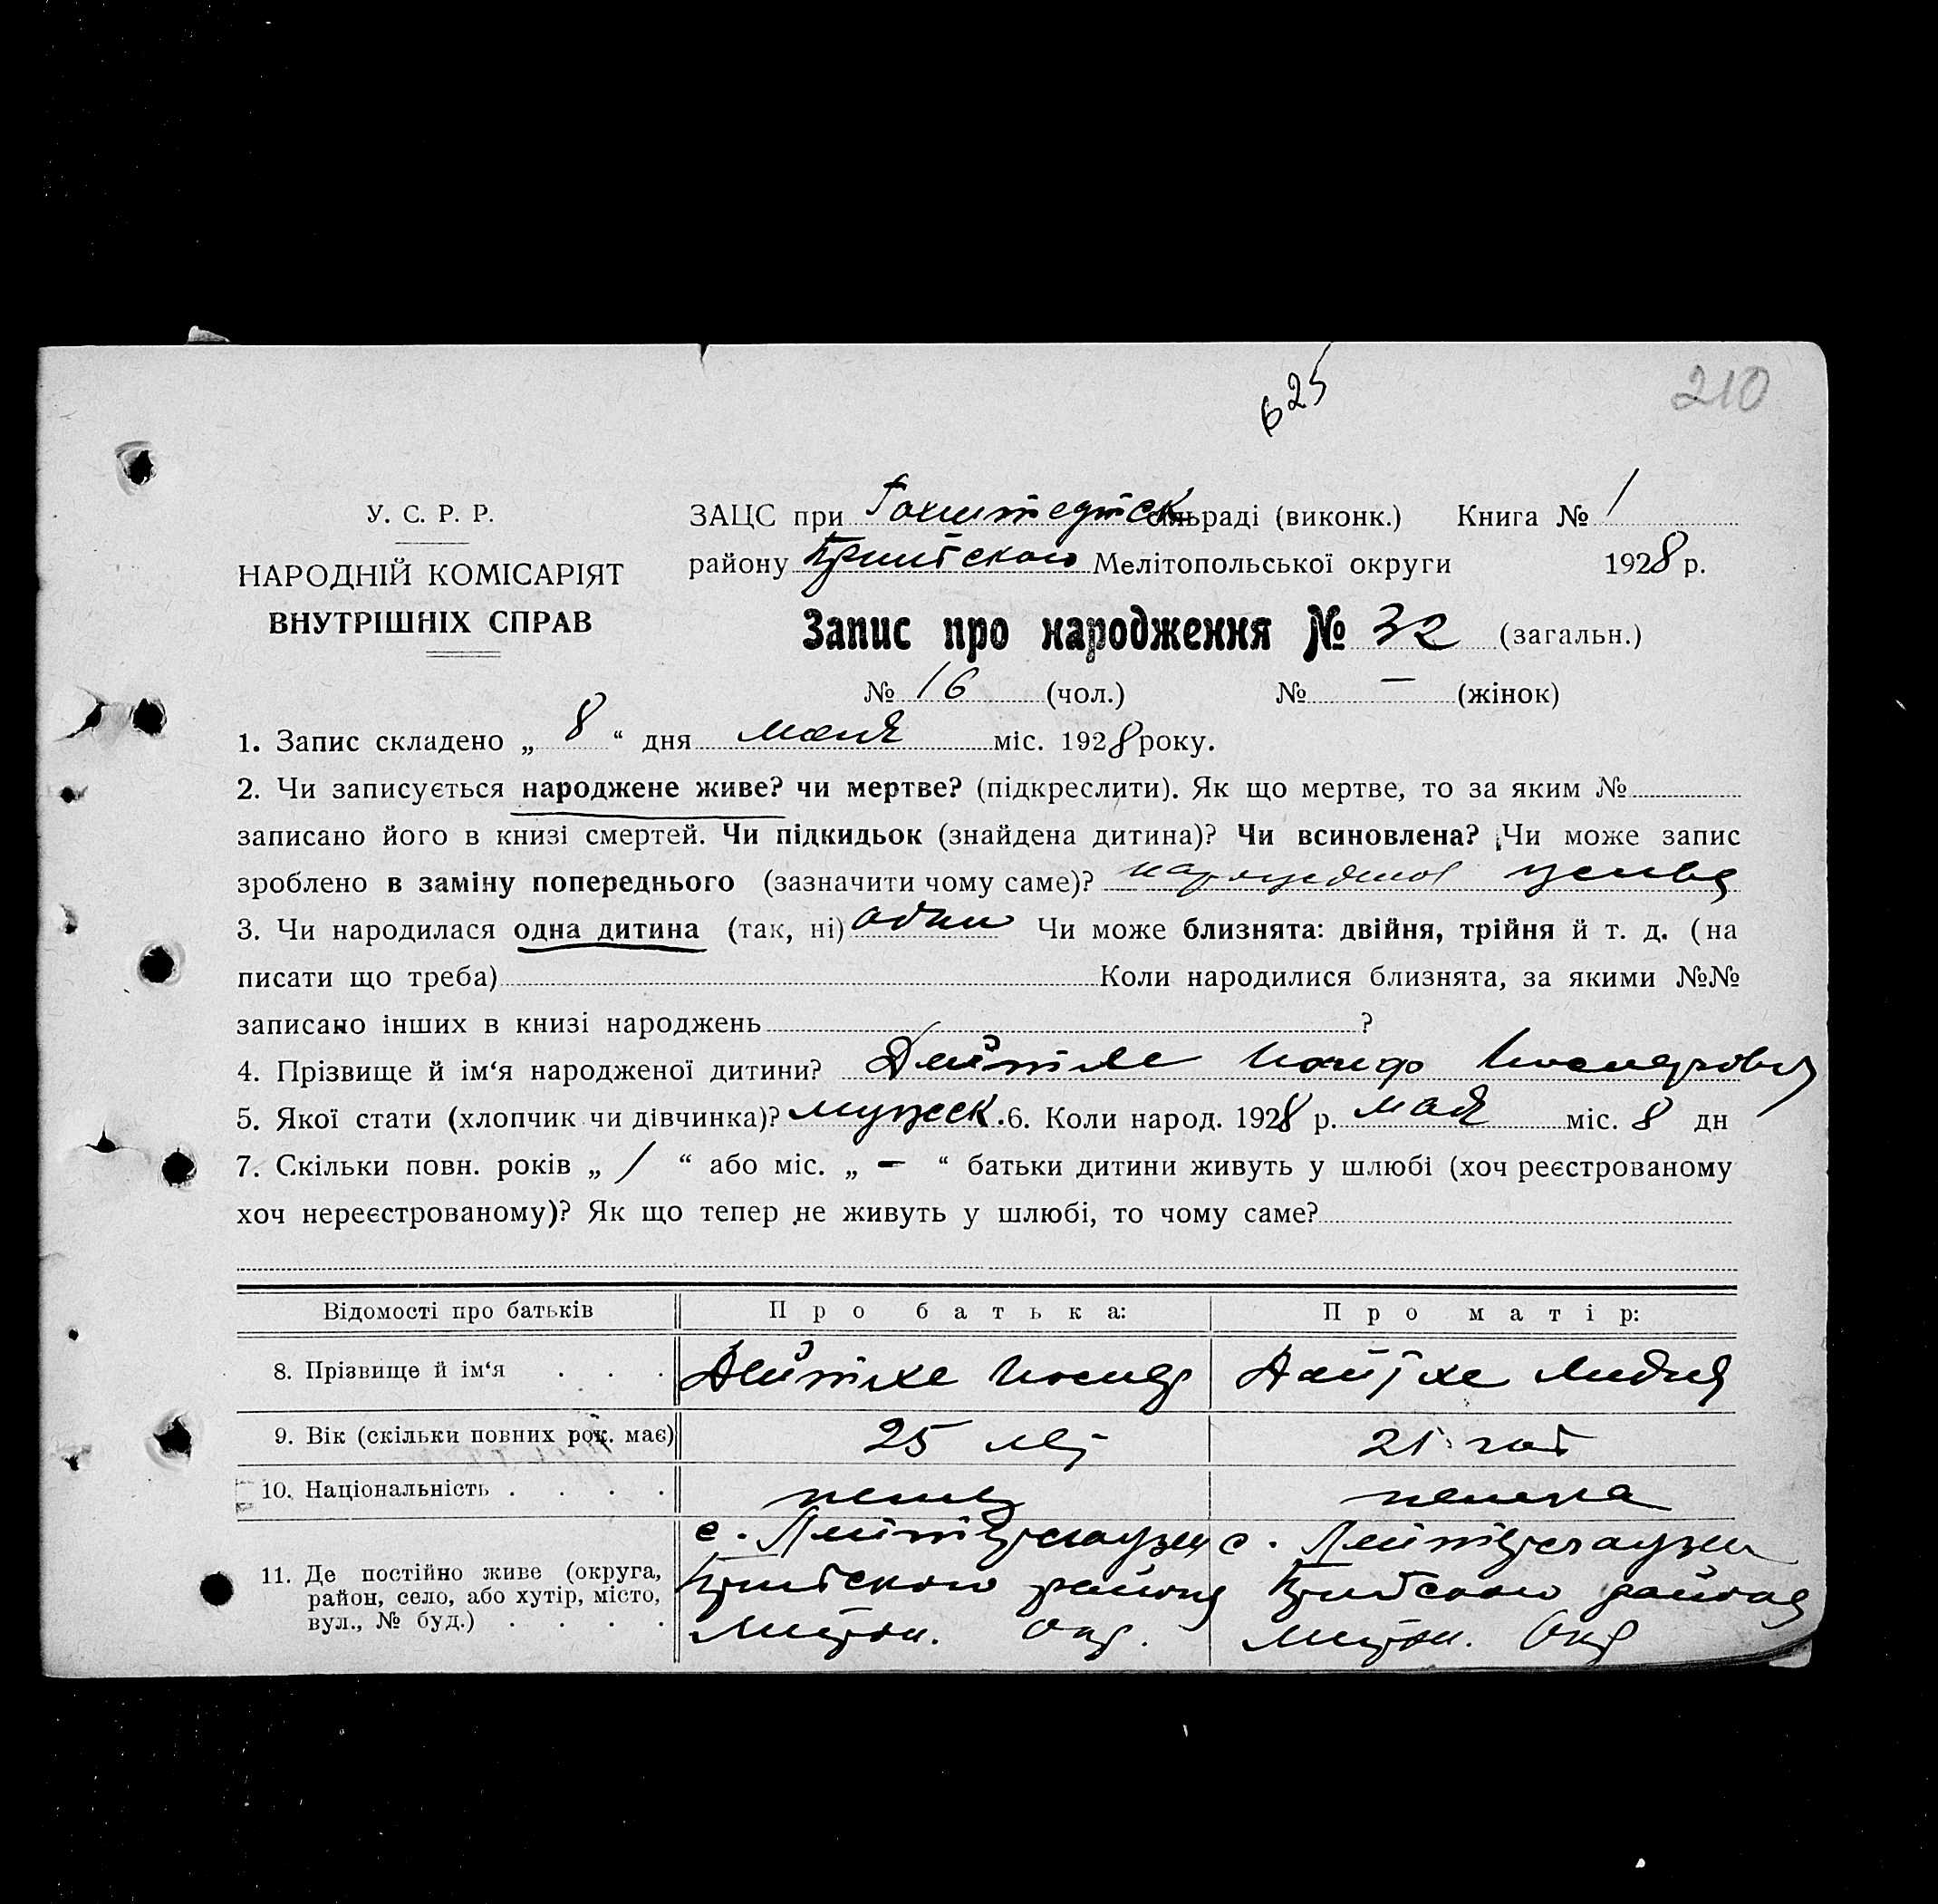 625
210
У. С. Р. Р.
НАРОДНІЙ КОМІСАРІЯТ
ВНУТРІШНІХ СПРАВ
ЗАЦС при Гохштедтск сільраді (виконк.) Книга № 1
району Мелітопольської округи 1928 р.
Запис про народження № 32 (загальн.)
№ 16 (чол.) № — (жінок)
1. Запис складено „ 8 “ дня мая міс. 1928 року.
2. Чи записується народжене живе? чи мертве? (підкреслити). Як що мертве, то за яким №
записано його в книзі смертей. Чи підкидьок (знайдена дитина)? Чи всиновлена? Чи може запис
зроблено в заміну попереднього (зазначити чому саме)?
3. Чи народилася одна дитина (так, ні) один Чи може близнята: двійня, трійня й т. д. (на
писати що треба) Коли народилися близнята, за якими №№
записано інших в книзі народжень ?
4. Прізвище й ім‘я народженої дитини?
5. Якої стати (хлопчик чи дівчинка)? мужск. 6. Коли народ. 1928 р. мая міс. 8 дн
7. Скільки повн. років „ 1 “ або міс. „ — “ батьки дитини живуть у шлюбі (хоч реєстрованому
хоч нереєстрованому)? Як що тепер не живуть у шлюбі, то чому саме?
Відомості про батьків Про батька: Про матір:
8. Прізвище й ім‘я . . . Иосиф Лидия
9. Вік (скільки повних рок. має) 25 лет 21 год
10. Національність . . . . немец немка
11. Де постійно живе (округа,
район, село, або хутір, місто,
вул., № буд.) . . . .
с.
района
Окр.
с.
района
Окр